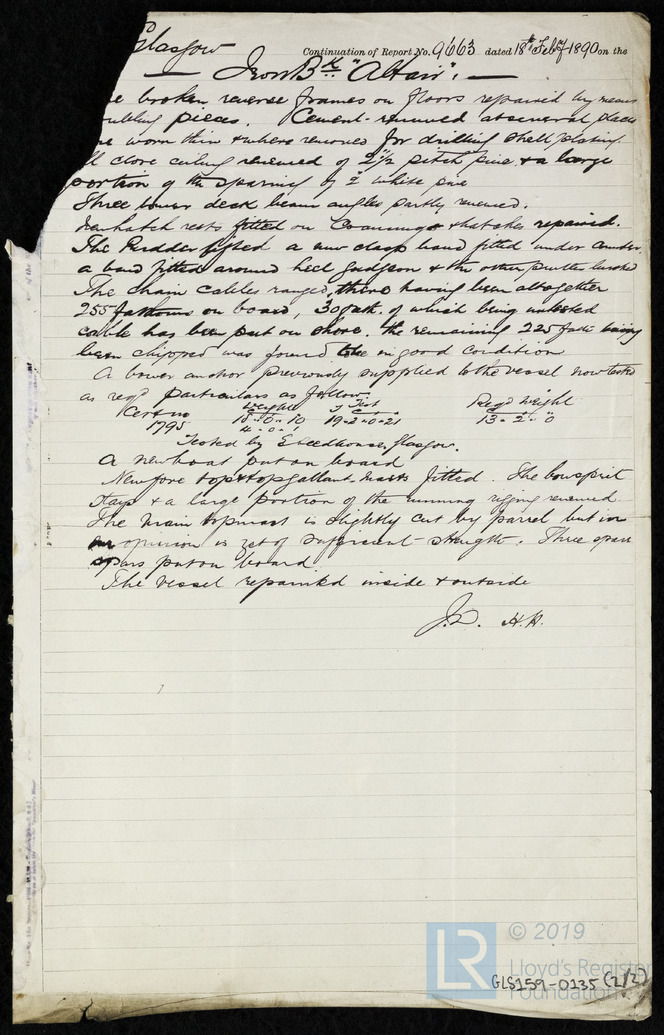 Glasgow Continuation of Report No. 9663 dated 18th Feby 1890 on the
Iron Bk "Altair".
broken, reverse frames on floors repaired by means
pieces. Cement renewed at several places
worn thin & where removed for drilling shell plating
close ceiling renewed of 2½ pitch pine & a large
portion of the sparring of 2" white pine
Three lower deck beam angles partly renewed.
New hatch rests fitted on Coamings & hatches repaired.
The Rudder lifted a new clasp band fitted under
a band fitted around heel gudgeon & the other pintles bushed
The chain cables ranged, there having been altogether
255 fathoms on board, 30 fath. of which being untested
cable has been put on shore. the remaining 225 fath having
been chipped was found to be in good condition
A bower anchor previously supplied to the vessel now tested
as reqd particulars as follow.
Cert no Weight Test Reqd Weight
1795 18-0-10 19-2-0-21 13-2-0
4-0-1
Tested by Glasgow.
A new boat put on board
New fore top & topgallant masts fitted. The bowsprit
stays & a large portion of the running rigging renewed.
The main topmast is slightly cut by parrel but in
opinion is yet of sufficient strength. Three spare
spars put on board
The vessel repainted inside & outside
J.D. H.H.
© 2019
LR Lloyd's Register
Foundation
GLS159-0135 (2/2)